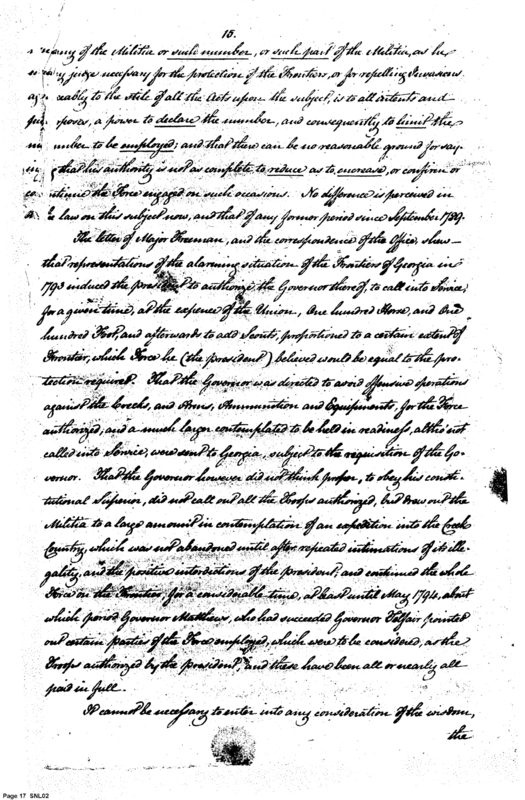 15.
many of the Militia or such number, or such part of the Militia, as he
may judge necessary for the protection of the Frontiers, or for repelling Invasions
agreeably to the stile of all the Acts upon the subject, is to all intents and
purposes, a power to declare the number, and consequently to limit the
number to be employed; and that there can be no reasonable ground for say-
ing that his authority is not as complete to reduce as to encrease, or confirm or
continue the Force engaged on such occasions. No difference is perceived in
the law on this subject now, and that of any former period since September 1789.
The letter of Major Freeman, and the correspondence of the Office, shew—
that representations of the alarming situation of the Frontiers of Georgia in
1793 induced the president to authorize the Governor thereof, to call into Service,
for a given time, at the expence of the Union, One hundred Horse, and One
hundred Foot, and afterwards to add Scouts, proportioned to a certain extent of
Frontier, which Force he (the president) believed would be equal to the pro-
tection required. That the Governor was directed to avoid offensive operations
against the Creeks, and Arms, Ammunition and Equipments, for the Force
authorized, and a much larger contemplated to be held in readiness, altho not
called into Service, were sent to Georgia, subject to the requisition of the Go-
vernor. That the Governor however did not think proper, to obey his consti-
tutional Superior, did not call out all the Troops authorized, but drew out the
Militia to a large amount in contemplation of an expedition into the Creek
Country, which was not abandoned until after repeated intimations of its ille-
gality, and the positive interdictions of the president, and continued the whole
Force on the Frontier, for a considerable time, at least until May 1794, about
which period Governor Matthews, who had succeeded Governor Telfair pointed
out certain parties of the Force employed, which were to be considered, as the
Troops authorized by the president, and these have been all or nearly all
paid in full.
It cannot be necessary to enter into any consideration of the wisdom,
the
Page 17 SNL02